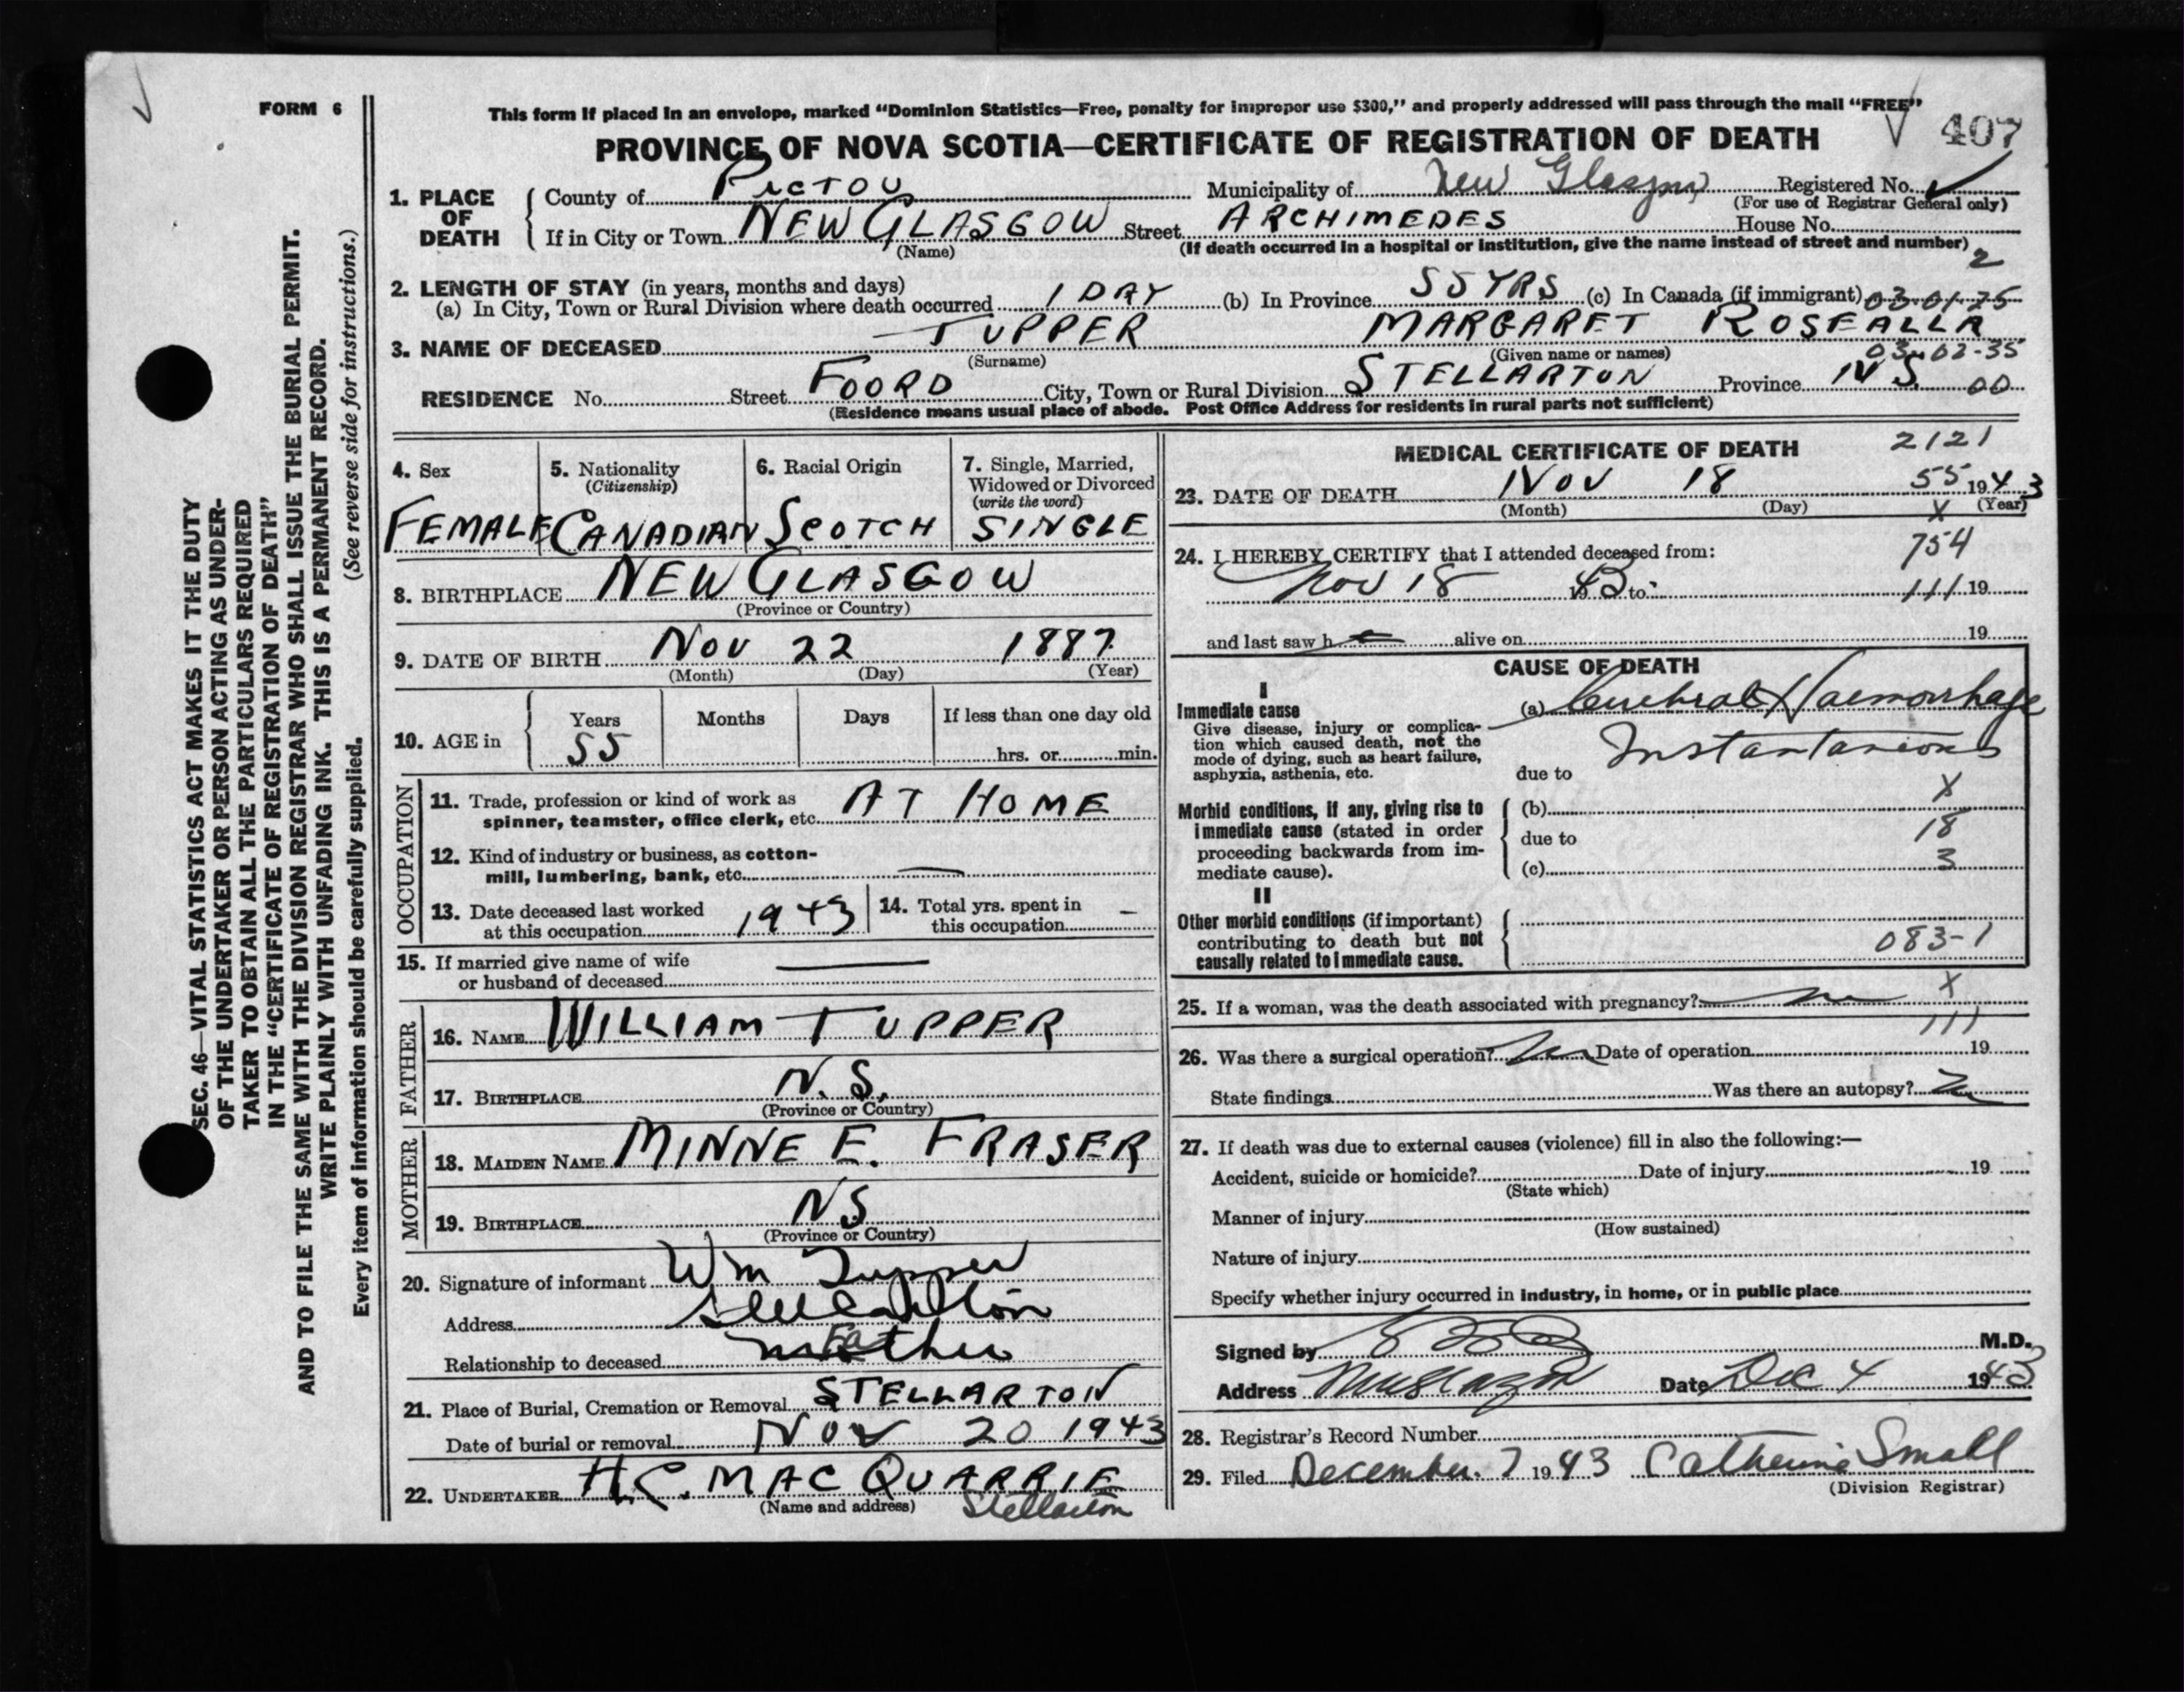 FORM 6
This form if placed in an envelope, marked “Dominion Statistics—Free, penalty for improper use $300,” and properly addressed will pass through the mail “FREE”
PROVINCE OF NOVA SCOTIA—CERTIFICATE OF REGISTRATION OF DEATH
407
1. PLACE OF DEATH
County of PICTOU Municipality of New Glasgow Registered No.
(For use of Registrar General only)
If in City or Town NEW GLASGOW Street ARCHIMEDES House No.
(Name) (If death occurred in a hospital or institution, give the name instead of street and number)
2
2. LENGTH OF STAY (in years, months and days)
(a) In City, Town or Rural Division where death occurred 1 DAY (b) In Province 55 YRS (c) In Canada (if immigrant) 03-01-75
3. NAME OF DECEASED TUPPER MARGARET ROSEALLA
(Surname) (Given name or names)
03-02-35
RESIDENCE No. Street FOORD City, Town or Rural Division STELLARTON Province N S. 00
(Residence means usual place of abode. Post Office Address for residents in rural parts not sufficient)
4. Sex
FEMALE
5. Nationality
(Citizenship)
CANADIAN
6. Racial Origin
SCOTCH
7. Single, Married,
Widowed or Divorced
(write the word)
SINGLE
8. BIRTHPLACE NEW GLASGOW
(Province or Country)
9. DATE OF BIRTH NOV 22 1887
(Month) (Day) (Year)
10. AGE in
Years Months Days If less than one day old
55 hrs. or min.
OCCUPATION
11. Trade, profession or kind of work as
spinner, teamster, office clerk, etc. AT HOME
12. Kind of industry or business, as cotton-
mill, lumbering, bank, etc. —
13. Date deceased last worked
at this occupation 1943
14. Total yrs. spent in
this occupation –
15. If married give name of wife
or husband of deceased —
FATHER
16. NAME WILLIAM TUPPER
17. BIRTHPLACE N. S.
(Province or Country)
MOTHER
18. MAIDEN NAME MINNE E. FRASER
19. BIRTHPLACE NS
(Province or Country)
20. Signature of informant Wm Tupper
Address Stellarton
Relationship to deceased Father
21. Place of Burial, Cremation or Removal STELLARTON
Date of burial or removal NOV 20 1943
22. UNDERTAKER H.C. MACQUARRIE
(Name and address) Stellarton
MEDICAL CERTIFICATE OF DEATH
2121
23. DATE OF DEATH NOV 18 55 1943
(Month) (Day) X (Year)
24. I HEREBY CERTIFY that I attended deceased from: 754
Nov 18 1943 to 111 19
and last saw h alive on 19
CAUSE OF DEATH
I
Immediate cause
Give disease, injury or complica-
tion which caused death, not the
mode of dying, such as heart failure,
asphyxia, asthenia, etc.
(a) Cerebral Haemorrhage
Instantaneous
due to
X
Morbid conditions, if any, giving rise to
immediate cause (stated in order
proceeding backwards from im-
mediate cause).
(b)
due to 18
(c) 3
II
Other morbid conditions (if important)
contributing to death but not
causally related to immediate cause.
083-1
25. If a woman, was the death associated with pregnancy? no X
111
26. Was there a surgical operation? no Date of operation 19
State findings Was there an autopsy? no
27. If death was due to external causes (violence) fill in also the following:—
Accident, suicide or homicide? Date of injury 19
(State which)
Manner of injury
(How sustained)
Nature of injury
Specify whether injury occurred in industry, in home, or in public place
Signed by M.D.
Address New Glasgow Date Dec 4 1943
28. Registrar's Record Number
29. Filed December 7 1943 Catherine Small
(Division Registrar)
SEC. 46—VITAL STATISTICS ACT MAKES IT THE DUTY
OF THE UNDERTAKER OR PERSON ACTING AS UNDER-
TAKER TO OBTAIN ALL THE PARTICULARS REQUIRED
IN THE “CERTIFICATE OF REGISTRATION OF DEATH”
AND TO FILE THE SAME WITH THE DIVISION REGISTRAR WHO SHALL ISSUE THE BURIAL PERMIT.
WRITE PLAINLY WITH UNFADING INK. THIS IS A PERMANENT RECORD.
Every item of information should be carefully supplied. (See reverse side for instructions.)